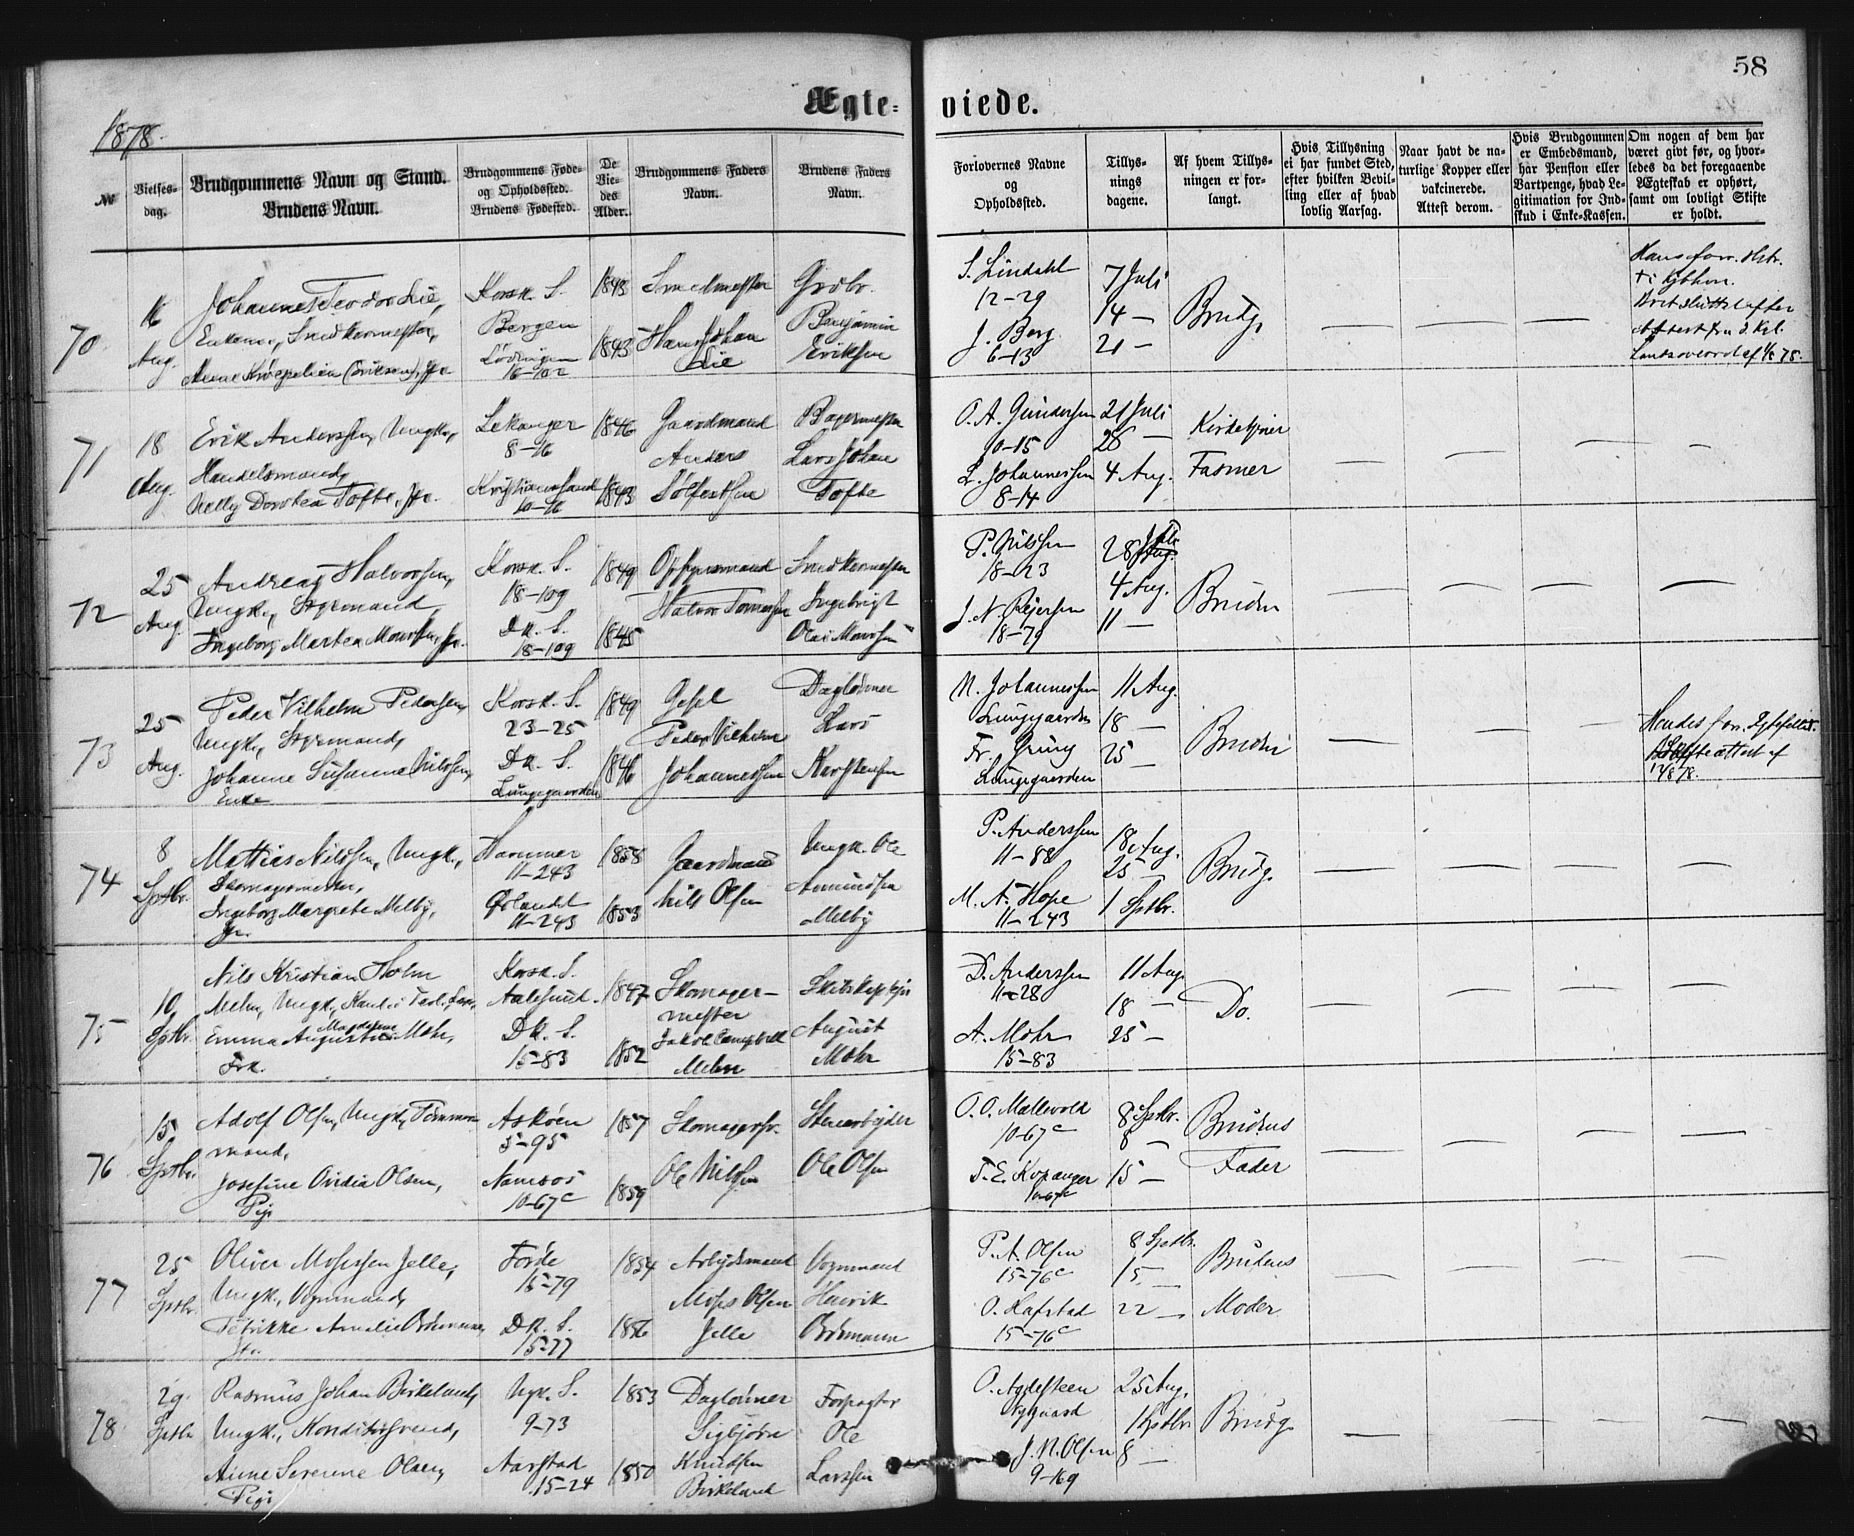 58
Ægte- viede.
1878.
№
Vielses-
dag.
Brudgommens Navn og Stand.
Brudens Navn.
Brudgommens Føde-
og Opholdssted.
Brudens Fødested.
De
Vie-
des
Alder.
Brudgommens Faders
Navn.
Brudens Faders
Navn.
Forlovernes Navne
og
Opholdssted.
Tillys-
nings
dagene.
Af hvem Tillys-
ningen er for-
langt.
Hvis Tillysning
ei har fundet Sted,
efter hvilken Bevil-
ling eller af hvad
lovlig Aarsag.
Naar havt de na-
turlige Kopper eller
vakcinerede.
Attest derom.
Hvis Brudgommen
er Embedsmand,
har Pension eller
Vartpenge, hvad Le-
gitimation for Ind-
skud i Enke-Kassen.
Om nogen af dem har
været givt før, og hvor-
ledes da det foregaaende
Ægteskab er ophørt,
samt om lovligt Skifte
er holdt.
70.
16
Aug.
Johannes Teodor Lie,
Enkem., Snedkermester,
Korsk. S.
Bergen
Lødingen
16-102
1843
1843
Smedmester
Hans Johan
Lie
Grdbr.
Benjamin
Eriksen
S. Lindahl
12-29
J. Berg
6-13
7 Juli
14 —
21 —
Brudg.
— — —
71
18
Aug.
Erik Anderssen, Ungk.,
Handelsmand,
Nelly Dorotea Tofte, Jfr.
Lekanger
8-16
Kristianssand
10-16
1846
1843
Gaardmand
Anders
Sølfestsen
Bagermester
Lars Johan
Tofte
O. A. Gundersen
10-15
L. Johannessen
8-14
21 Juli
28 —
4 Aug.
Kirketjener
Fasmer
— — — —
72
25
Aug.
Andreas Halvorsen,
Ungk., Styrmand,
Ingeborg Martea Monssen, Jfr.
Korsk. S.
18-109
Dk. S.
18-109
1849
1845
Opsynsmand
Halvor
Snedkermester
Ingebrigt
Olai Monssen
P. Nilssen
18-23
J. N. Reiersen
18-79
28 Juli
4 Aug.
11 —
Bruden
— — — —
73
25
Aug.
Peder Vilhelm Pedersen,
Ungk., Styrmand,
Johanne Susanne Nilssen,
Enke
Korsk. S.
23-25
Dk. S.
Lungegaarden
1849
1846
Gesel
Peder Vilhelm
Johannessen
Daglønner
Lars
Karstensen
N. Johannessen
Lungegaarden
Fr. Gruny
Lungegaarden
11 Aug.
18 —
25 —
Bruden
— — —
74
8
Sptbr.
Mattias Nilssen, Ungk.,
Skomagermester,
Ingeborg Margrete Melby,
Jfr.
Hammer
11-243
Ørlandet
11-243
1858
1853
Gaardmand
Nils Olsen
Ungk. Ole
Amundsen
Melby
P. Anderssen
11-88
M. A. Hope
11-243
18 Aug.
25 —
1 Sptbr.
Brudg.
— — — —
75
10
Sptbr.
Nils Kristian Holm
Melm, Ungk., Kand. i Teol.,
Emma Augusta Magdalena Mohr,
Frk.
Korsk. S.
Aalesund.
Dk. S.
15-83
1847
1852
Skomager-
mester
Jakob Campbell
Melm
Skibskaptein
August
Mohr
D. Anderssen
11-28
A. Mohr
15-83
11 Aug.
18 —
25 —
Do.
— — — —
76
15
Sptbr.
Adolf Olsen, Ungk., Tømmer-
mand,
Josefine Ovidia Olsen,
Pige
Askøen
5-95
Namsos
10-67c
1857
1859
Skomagersv.
Ole Nilssen
Stenarbeider
Ole Olsen
O. O. Mallevold
10-67c
T. E. Kopanger
10-67c
8 Sptbr.
8 —
15 —
Brudens
Fader
— — — —
77
25
Sptbr.
Oliver Mosessen Jelle,
Ungk., Vognmand,
Petrikke Amalie Brdrmann,
Jfr.
Førde
15-79
Dk. S.
15-77
1854
1856
Arbeidsmand
Moses Olsen
Jelle
Vognmand
Henrik
P. A. Olsen
15-76c
O. Hafstad
15-76c
8 Sptbr.
15 —
22 —
Brudens
Moder
— — — —
78
29
Sptbr.
Rasmus Johan Birkeland,
Ungk., Konditorsvend,
Anne Serenne Olsen,
Pige
Nyk. S.
9-73
Aarstad
15-24
1853
1850
Daglønner
Sigbjørn
Knudsen
Birkeland
Forpagter
Ole
Larssen
O. Agdesteen
Nygaard
J. N. Olsen
9-169
25 Aug.
1 Sptbr.
8 —
Brudg.
— — — —